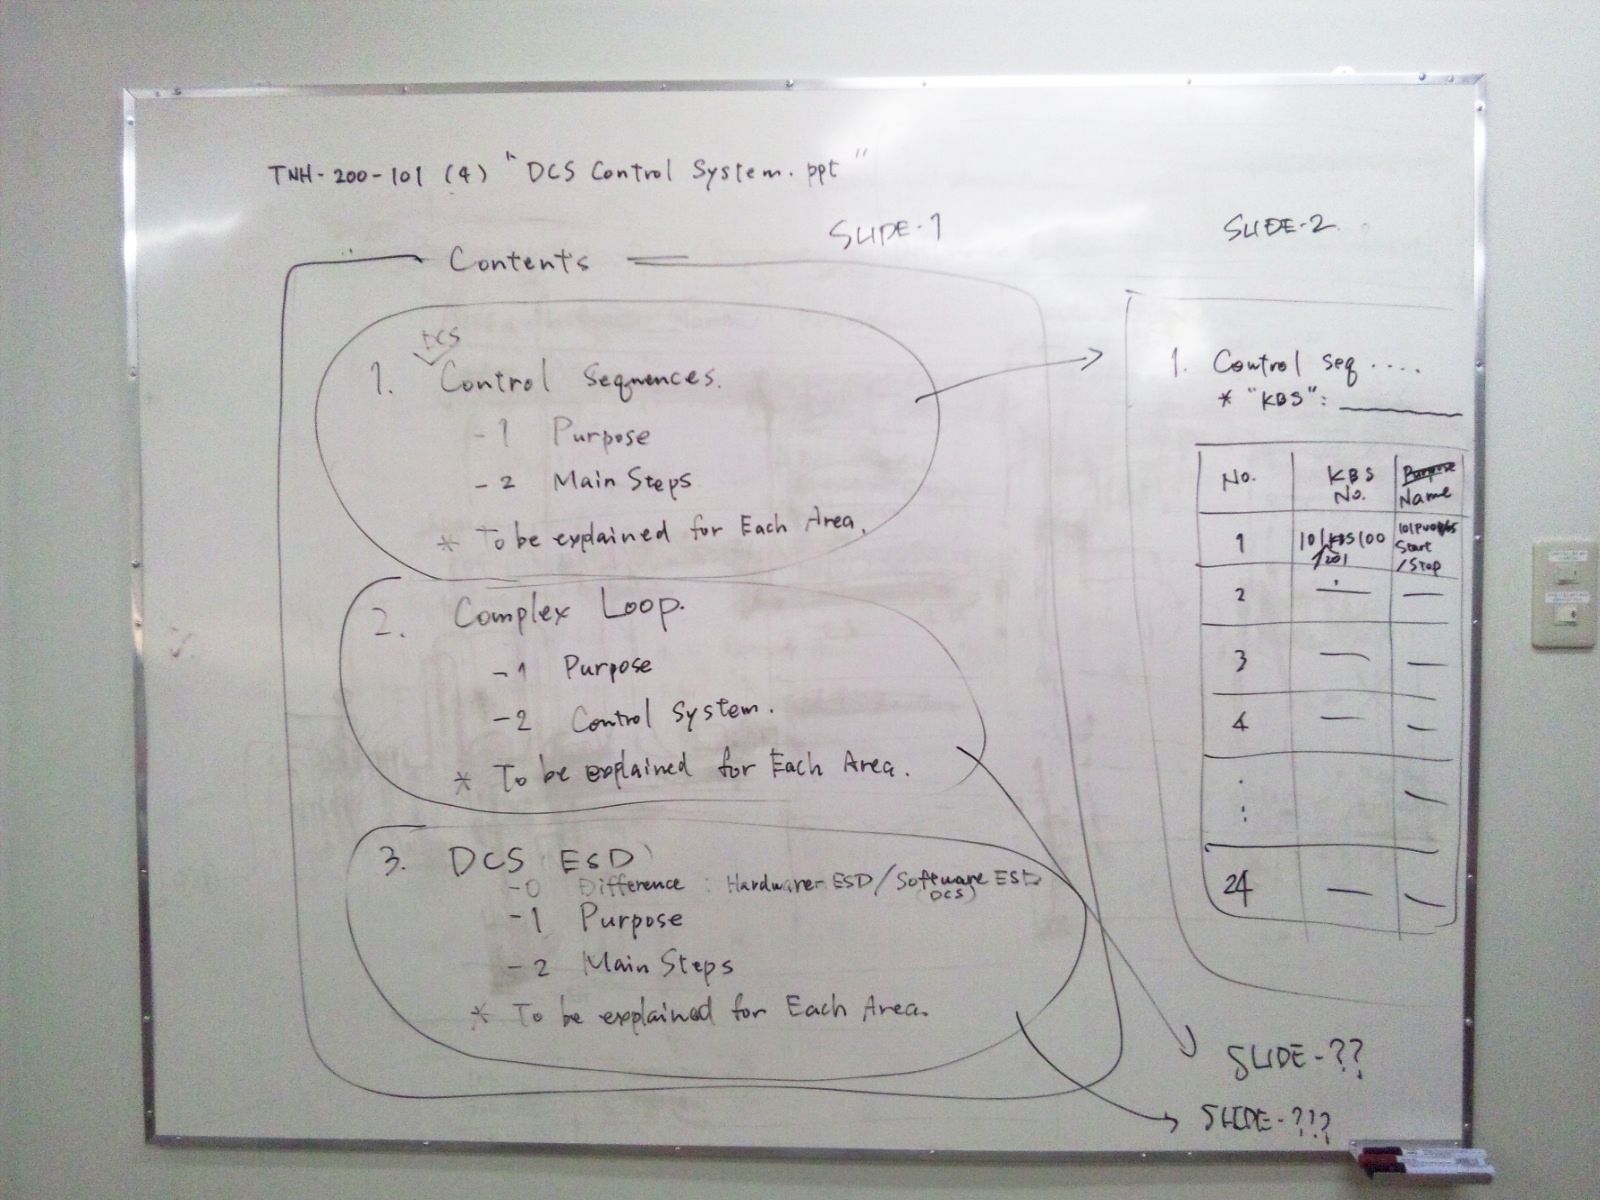 TNH-200-101 (4) "DCS Control System.ppt"
SLIDE-1
Contents
DCS
1. Control Sequences.
-1 Purpose
-2 Main Steps
* To be explained for Each Area.
2. Complex Loop.
-1 Purpose
-2 Control System.
* To be explained for Each Area.
3. DCS ESD
-0 Difference : Hardware-ESD/Software ESD
(DCS)
-1 Purpose
-2 Main Steps
* To be explained for Each Area.
SLIDE-2
1. Control seq ....
* "KBS": ________
No. KBS No. Purpose Name
1 101KBS100 /201 Start /Stop
2
3
4
:
24
SLIDE-??
SLIDE-???